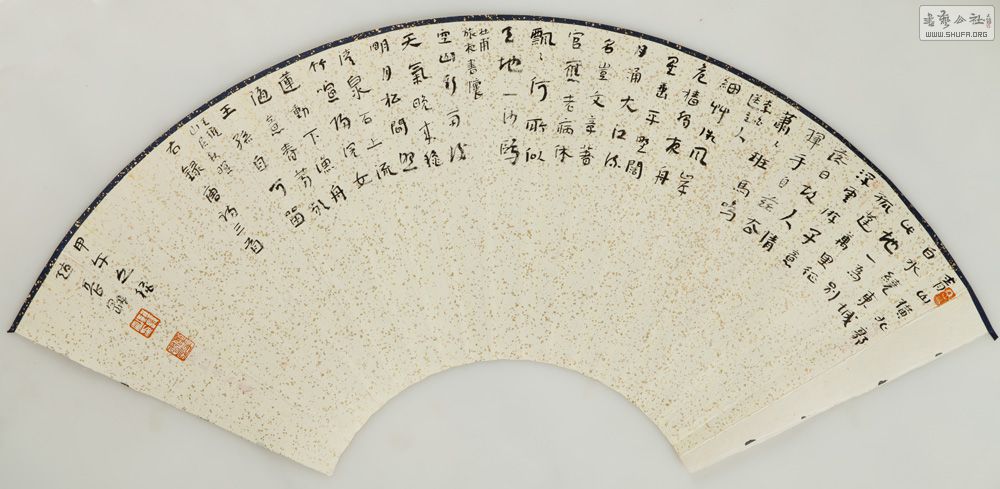 青山橫北郭
白水繞東城
此地一為別
孤蓬萬里征
浮雲遊子意
落日故人情
揮手自茲去
蕭〻班馬鳴
李白
送友人
細草微風岸
危檣獨夜舟
星垂平野闊
月涌大江流
名豈文章著
官應老病休
飄〻何所似
天地一沙鷗
杜甫
旅夜書懷
空山新雨後
天氣晚來秋
明月松間照
清泉石上流
竹喧歸浣女
蓮動下漁舟
隨意春芳歇
王孫自可留
王維
山居秋暝
右錄唐詩三首
甲午
書藝公社
WWW.SHUFA.ORG